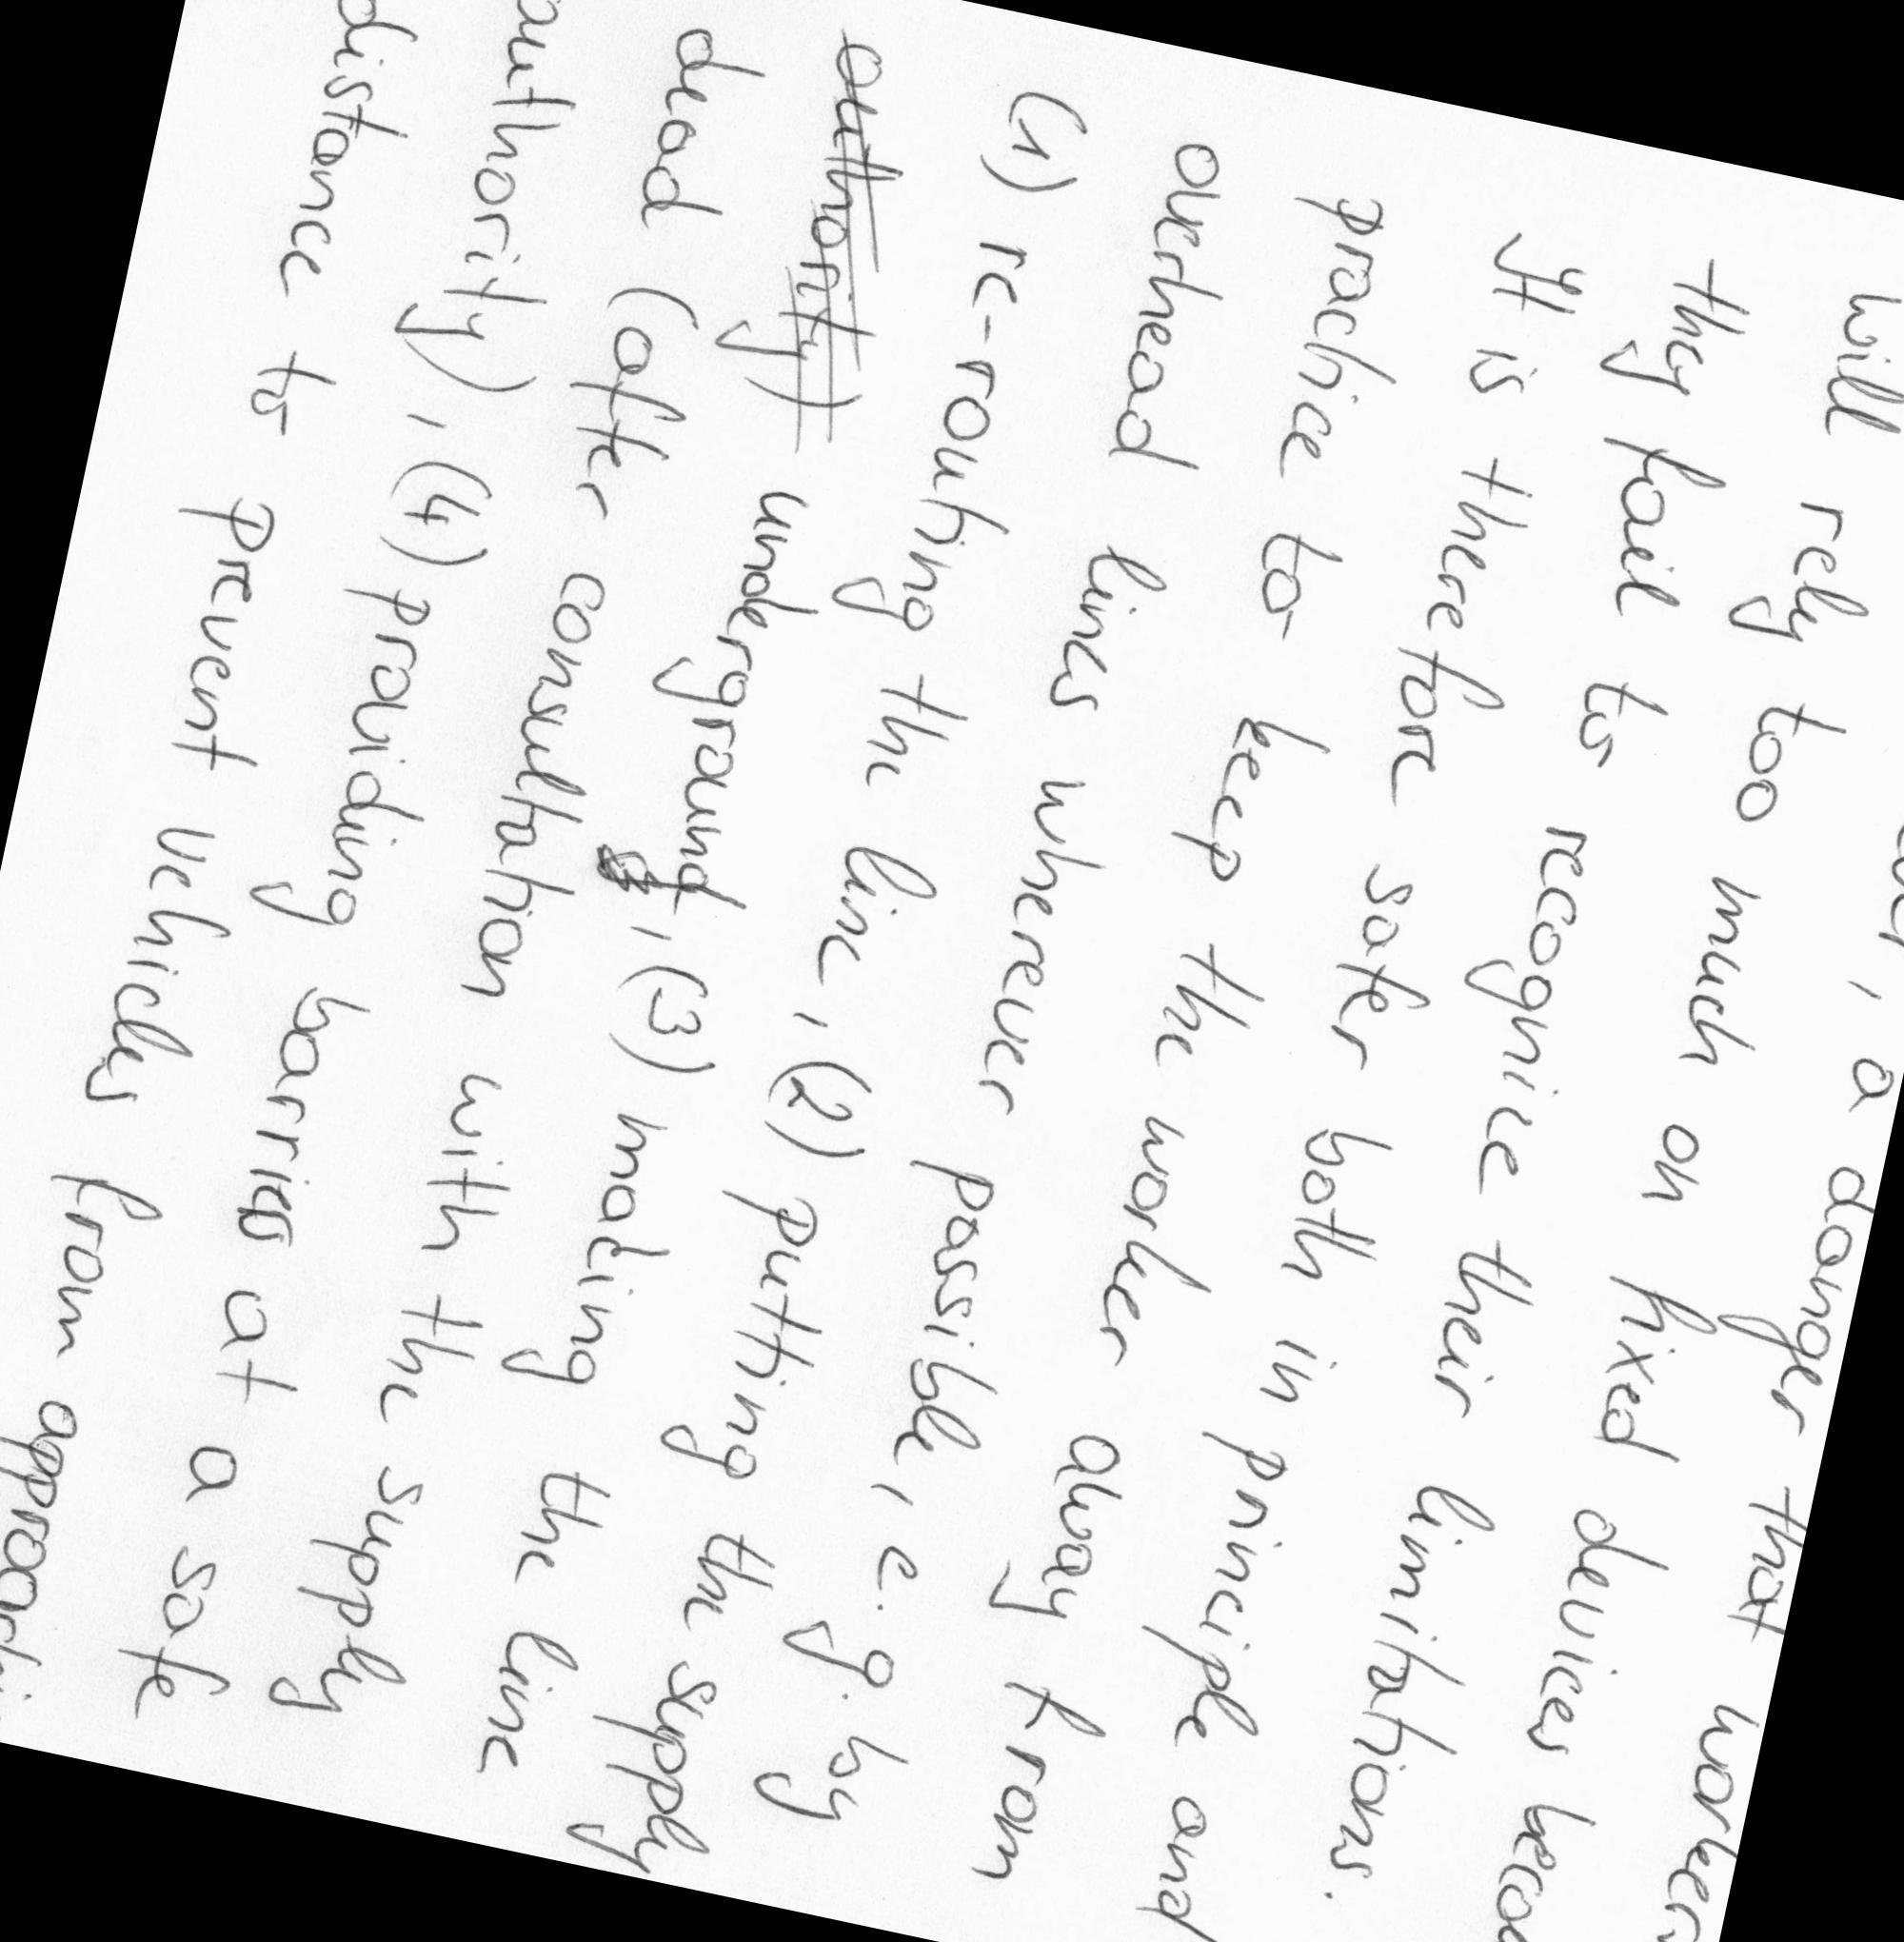 , a danger that workers
will rely too much on fixed devices
they fail to recognice their limitations.
It is therefore safer both in principle and
practice to keep the worker away from
overhead lines wherever possible, e.g. by
(1) re-routing the line, (2) putting the supply
authority) underground, (3) making the line
dead (after consultation with the supply
authority), (4) providing barries at a safe
distance to prevent vehicles from